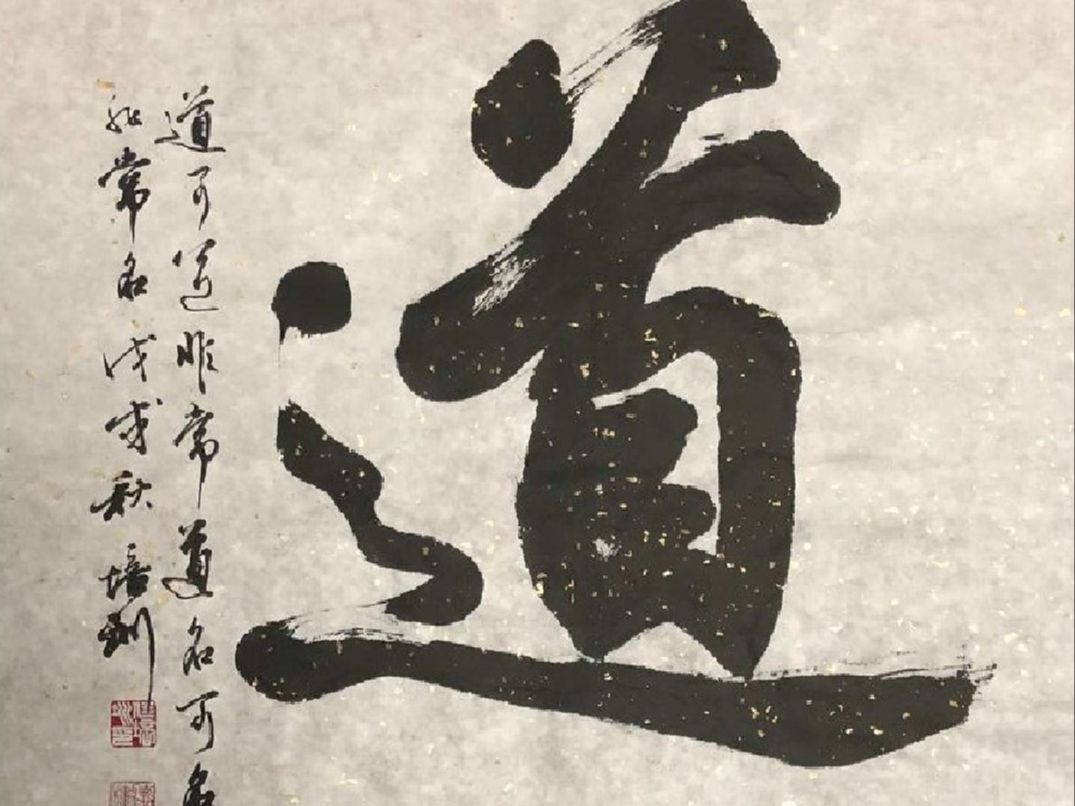 道
道可道非常道名可名
非常名戊戌秋培训